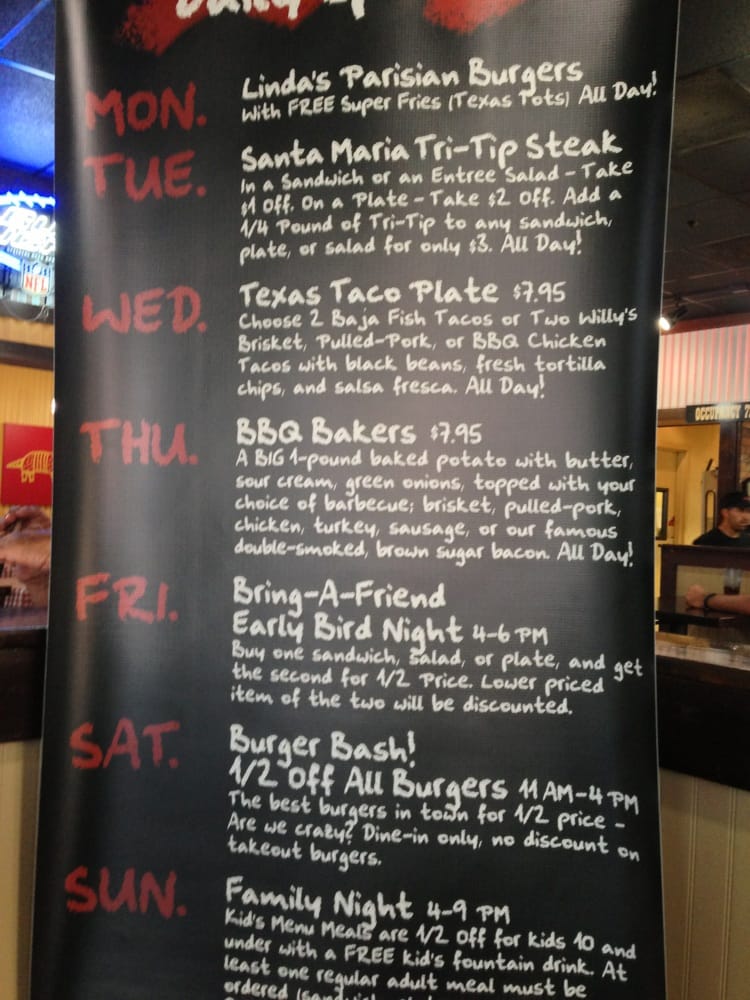 MON.
Linda's Parisian Burgers
With FREE Super Fries (Texas Tots) All Day!
TUE.
Santa Maria Tri-Tip Steak
In a Sandwich or an Entree Salad - Take
$1 Off. On a Plate - Take $2 Off. Add a
1/4 Pound of Tri-Tip to any sandwich,
plate, or salad for only $3. All Day!
WED.
Texas Taco Plate $7.95
Choose 2 Baja Fish Tacos or Two Willy's
Brisket, Pulled-Pork, or BBQ Chicken
Tacos with black beans, fresh tortilla
chips, and salsa fresca. All Day!
THU.
BBQ Bakers $7.95
A BIG 1-pound baked potato with butter,
sour cream, green onions, topped with your
choice of barbecue; brisket, pulled-pork,
chicken, turkey, sausage, or our famous
double-smoked, brown sugar bacon. All Day!
FRI.
Bring-A-Friend
Early Bird Night 4-6 PM
Buy one sandwich, salad, or plate, and get
the second for 1/2 Price. Lower priced
item of the two will be discounted.
SAT.
Burger Bash!
1/2 Off All Burgers 11 AM-4 PM
The best burgers in town for 1/2 price -
Are we crazy? Dine-in only, no discount on
takeout burgers.
SUN.
Family Night 4-9 PM
Kid's Menu Meals are 1/2 Off for kids 10 and
under with a FREE kid's fountain drink. At
least one regular adult meal must be
ordered
NFL
OCCUPANCY